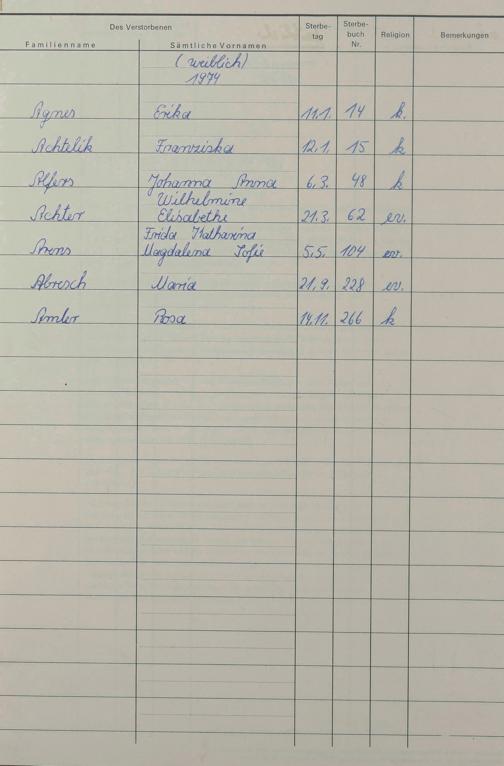 Des Verstorbenen Sterbe- Sterbe- Religion Bemerkungen
tag buch
Familienname Sämtliche Vornamen Nr.
(weiblich)
1974
Agnes Erika 11.1. 14 k.
Achtelik Franziska 12.1. 15 k
Alfers Johanna Anna 6.3. 48 k
Wilhelmine
Achter Elisabethe 21.3. 62 ev.
Frida Katharina
Arens Magdalena Sofie 5.5. 104 ev.
Abresch Maria 21.9. 228 ev.
Amler Rosa 14.11. 266 k